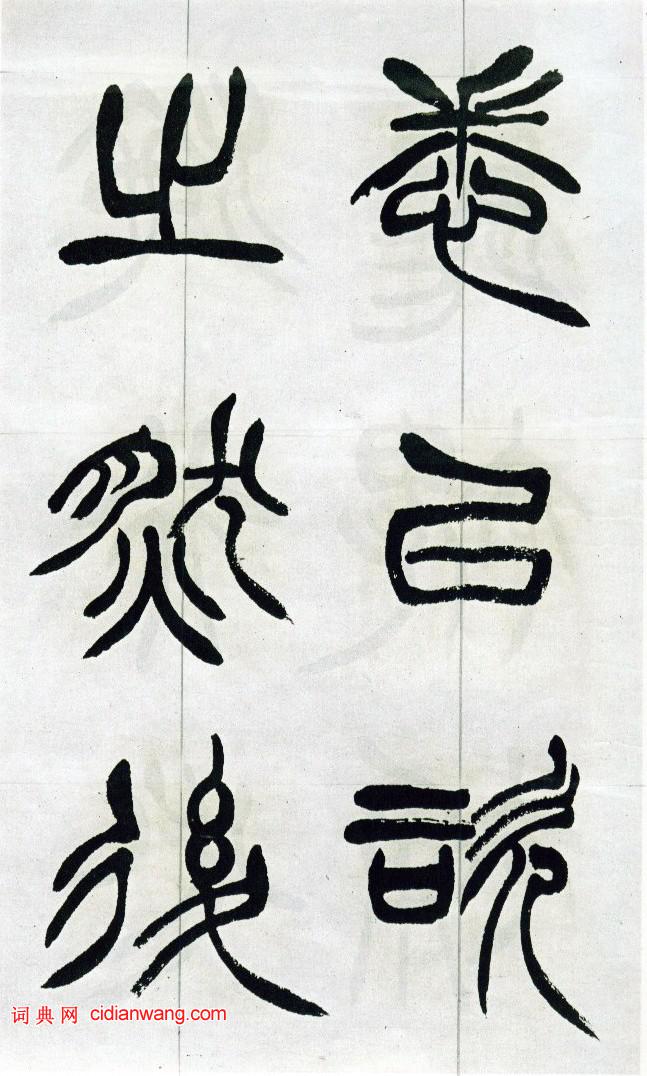 悉以諮
之然後
词典网 cidianwang.com